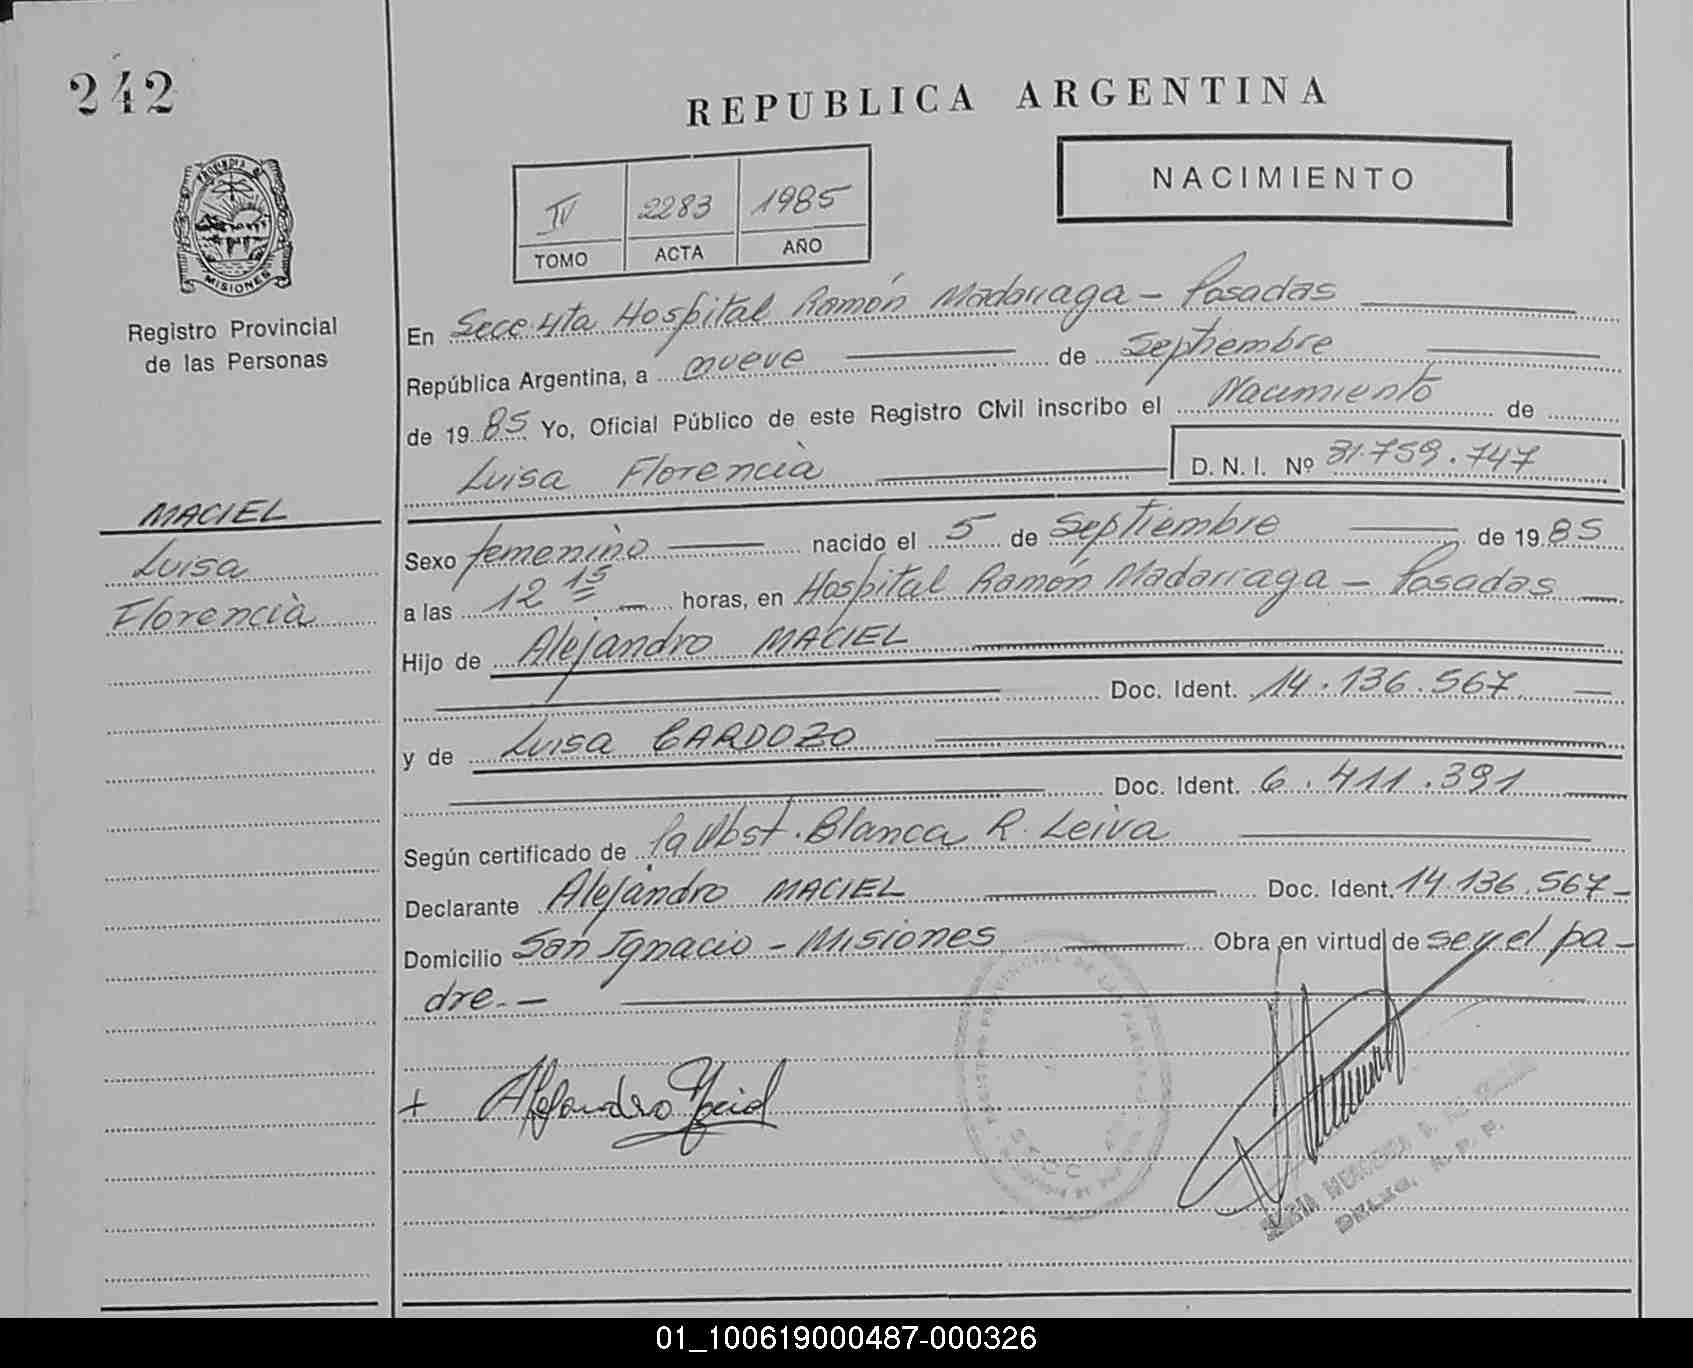 242
REPUBLICA ARGENTINA
NACIMIENTO
IV 2283 1985
TOMO ACTA AÑO
PROVINCIA DE
MISIONES
Registro Provincial
de las Personas
En Secc 4ta Hospital Ramón Madarraga - Posadas
República Argentina, a nueve de Septiembre
de 19 85 Yo, Oficial Público de este Registro Civil inscribo el Nacimiento de
Luisa Florencia D. N. I. Nº 31.759.747
MACIEL
Luisa
Florencia
Sexo femenino nacido el 5 de Septiembre de 19 85
a las 12 15 horas, en Hospital Ramón Madarraga - Posadas
Hijo de Alejandro MACIEL
Doc. Ident. 14.136.567
y de Luisa CARDOZO
Doc. Ident. 6.411.391
Según certificado de la Obst. Blanca R. Leiva
Declarante Alejandro MACIEL Doc. Ident. 14.136.567
Domicilio San Ignacio - Misiones Obra en virtud de ser el pa-
dre.-
+ Alejandro Maciel
01_100619000487-000326